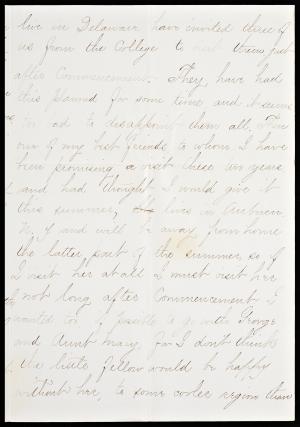 live in Delaware have invited three of
us from the College to visit them just
after Commencement. They have had
this planned for some time and it seems
too bad to disappoint them all. Then
one of my best friends to whom I have
been promising a visit these six years
and had thought I would give it
this summer, lives in Auburn
N.Y and will be away from home
the latter part of the summer so if
I visit her at all I must visit her
not long after Commencement. I
wanted to if possible to go with George
and Aunt Mary for I don't think
the little fellow would be happy
without her, to some cooler region than